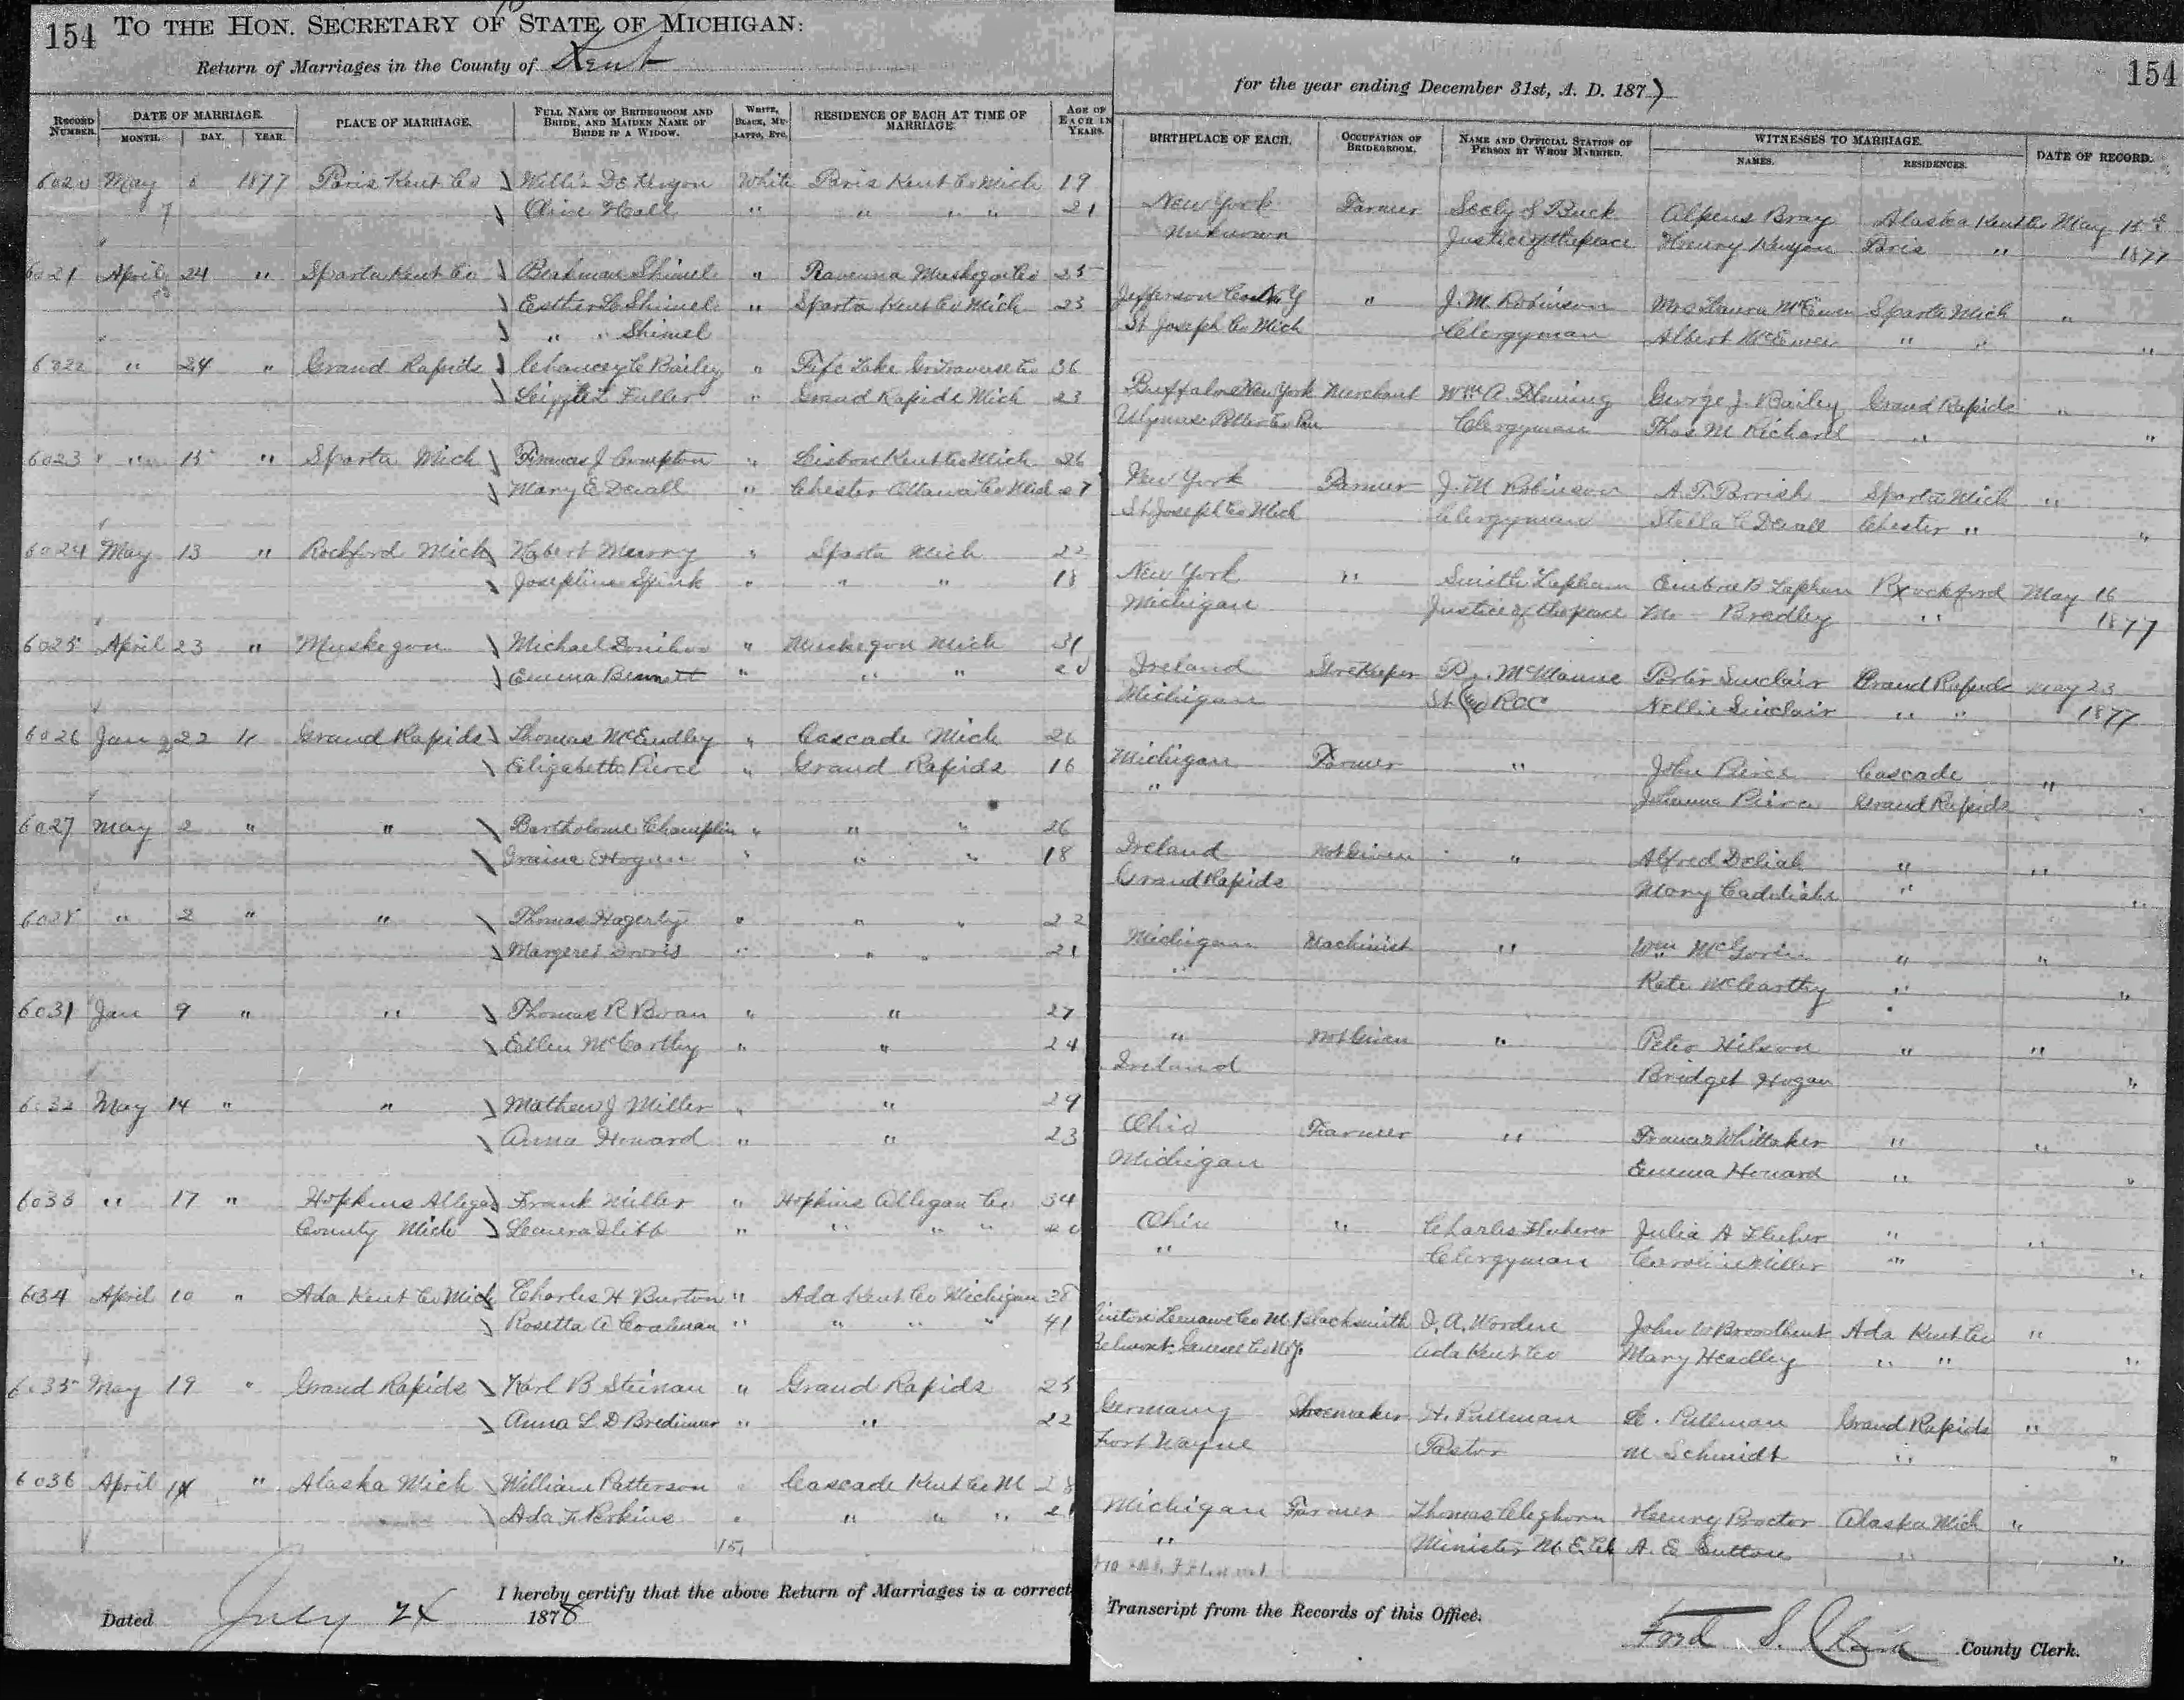 154 TO THE HON. SECRETARY OF STATE OF MICHIGAN:
Return of Marriages in the County of Kent
for the year ending December 31st, A. D. 1877
154
RECORD NUMBER. DATE OF MARRIAGE. MONTH. DAY. YEAR. PLACE OF MARRIAGE. FULL NAME OF BRIDEGROOM AND BRIDE, AND MAIDEN NAME OF BRIDE IF A WIDOW. WHITE, BLACK, MULATTO, ETC. RESIDENCE OF EACH AT TIME OF MARRIAGE. AGE OF EACH IN YEARS.
BIRTHPLACE OF EACH. OCCUPATION OF BRIDEGROOM. NAME AND OFFICIAL STATION OF PERSON BY WHOM MARRIED. WITNESSES TO MARRIAGE. NAMES. RESIDENCES. DATE OF RECORD.
6020 May 6 1877 Paris Kent Co Willis De Kenyon White Paris Kent Co Mich 19 New York Farmer Seely S Buck Alpeus Bray Alaska Kent Co May 15
7 Olive Hall " " " " 21 Unknown Justice of the peace Henry Kenyon Paris " 1877
6021 April 24 " Sparta Kent Co Shimel " Ravenna Muskegon Co 25 Jefferson Co N Y " J. M. Robinson Mrs Laura McEwen Sparta Mich "
Esther L Shimel " Sparta Kent Co Mich 23 St Joseph Co Mich Clergyman Albert McEwen " " "
" " Shimel
6022 " 24 " Grand Rapids Chancey C Bailey " Fife Lake Gr Traverse Co 36 Buffalo New York Merchant Wm A. Fleming George J. Bailey Grand Rapids "
Fuller " Grand Rapids Mich 23 Ulysses Potter Co Clergyman Thos M Richard " "
6023 " 15 " Sparta Mich Frances J Crumpton " Lisbon Kent Co Mich 26 New York Farmer J. M Robinson A. T. Parrish Sparta Mich "
Mary E Devall " Chester Ottawa Co Mich 27 St Joseph Co Mich Clergyman Stella C Devall Chester " "
6024 May 13 " Rockford Mich Hobert Murry " Sparta Mich 22 New York " Smith Lapham Embree B Lapham Rockford May 16
Josephine Spink " " " 18 Michigan Justice of the peace M. Bradley " 1877
6025 April 23 " Muskegon Michael Donihoo " Muskegon Mich 31 Ireland Storekeeper P. J. McManne Porter Sinclair Grand Rapids May 23
Emma Bennett " " " 20 Michigan St RCC Nellie Sinclair " " 1877
6026 Jan 22 " Grand Rapids Thomas McEndley " Cascade Mich 26 Michigan Farmer " John Pierce Cascade "
Elizabeth Pierce " Grand Rapids 16 " Johanna Pierce Grand Rapids "
6027 May 2 " " Bartholome Champlin " " " 26 Ireland Not Given " Alfred Deliah " "
Hogan " " " 18 Grand Rapids Mary " "
6028 " 2 " " Thomas Hagerty " " " 22 Michigan Machinist " Wm McGovin " "
Margeret Dorris " " " 21 " Kate McCarthy " "
6031 Jan 9 " " Thomas R Bvan " " 27 " Not Given " Peter Hilson " "
Ellen McCarthy " " 24 Ireland Bridget Hogan "
6032 May 14 " " Mathew J Miller " " 29 Ohio Farmer " Frances Whittaker " "
Anna Howard " " 23 Michigan Emma Howard " "
6033 " 17 " Hopkins Allegan Frank Miller " Hopkins Allegan Co 34 Ohio " Charles Julia A "
County Mich " " " " 20 " Clergyman Caroline Miller " "
6034 April 10 " Ada Kent Co Mich Charles H Burton " Ada Kent Co Michigan 38 Lenawe Co M Blacksmith I. A. Worden John W Broadbent Ada Kent Co "
Rosetta A Coaleman " " " " 41 Belmont Genesee Co N.Y. Ada Kent Co Mary Headley " " "
6035 May 19 " Grand Rapids Karl B Steinau " Grand Rapids 25 Germany Shoemaker H. Pullman L. Pullman Grand Rapids "
Anna L D " " 22 Fort Wayne Pastor M Schmidt " "
6036 April 14 " Alaska Mich William Patterson " Cascade Kent Co M 28 Michigan Farmer Thomas Cleghorn Henry Proctor Alaska Mich "
Ada F. Perkins " " " " 21 " Minister M. E. Ch A. E. Sutton " "
151
I hereby certify that the above Return of Marriages is a correct
Transcript from the Records of this Office.
Dated July 24 1878
S. County Clerk.